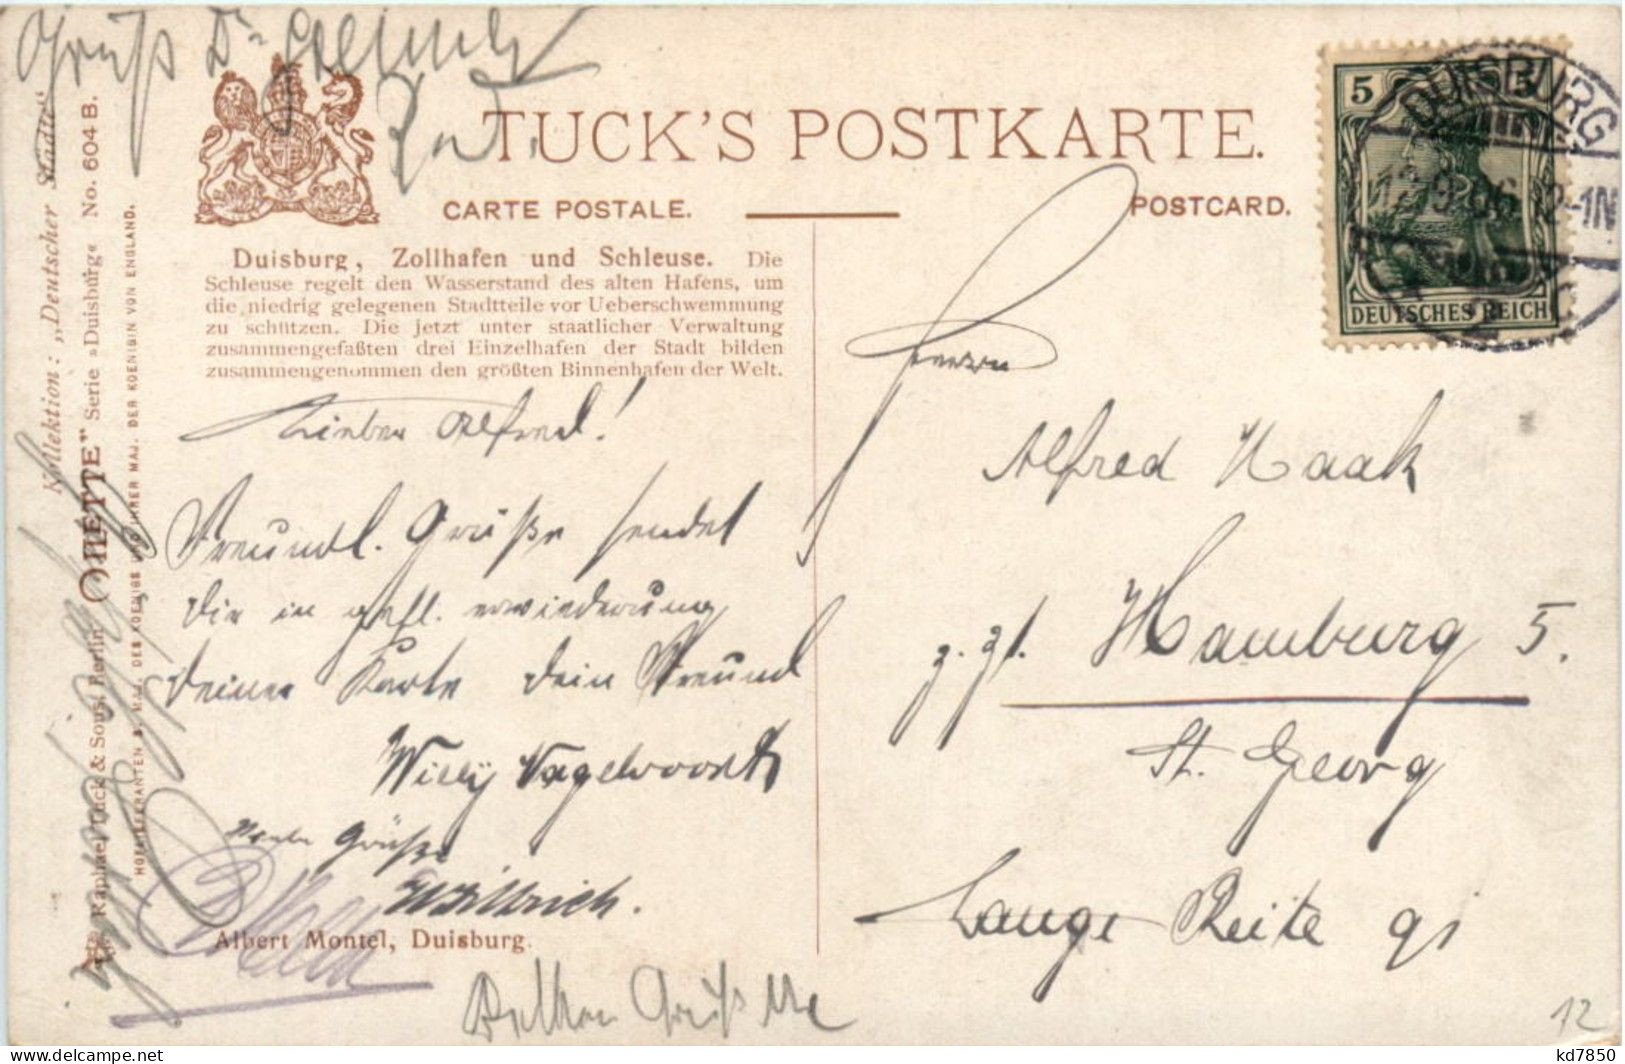 Gruß Dr
TUCK'S POSTKARTE.
CARTE POSTALE.
POSTCARD.
Duisburg, Zollhafen und Schleuse. Die
Schleuse regelt den Wasserstand des alten Hafens, um
die niedrig gelegenen Stadtteile vor Ueberschwemmung
zu schützen. Die jetzt unter staatlicher Verwaltung
zusammengefaßten drei Einzelhafen der Stadt bilden
zusammengenommen den größten Binnenhafen der Welt.
Lieber Alfred!
Freundl. Grüße sendet
Dir in gefl. erwiederung
deiner Karte dein Freund
Willy
Grüße
Albert Montel, Duisburg.
Gruß
Kollektion: „Deutscher Städte"
"OILETTE" Serie »Duisburg« No. 604 B.
Raphael Tuck & Sons, Berlin
HOFLIEFERANTEN S. MAJ. DES KOENIGS UND IHRER MAJ. DER KOENIGIN VON ENGLAND.
5 5
DEUTSCHES REICH
DUISBURG
Herrn
Alfred Haak
z. Zt. Hamburg 5.
St. Georg
Lange Reihe 91
12
kd7850